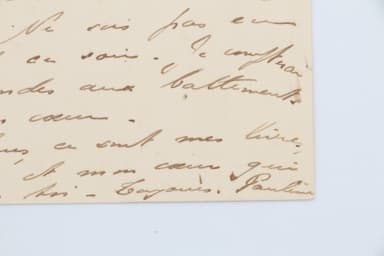 Ne suis pas en
ce soir. Je compterai
aux battements
cœur.
ce sont mes lèvres,
et mon cœur qui
toi - Toujours. Pauline